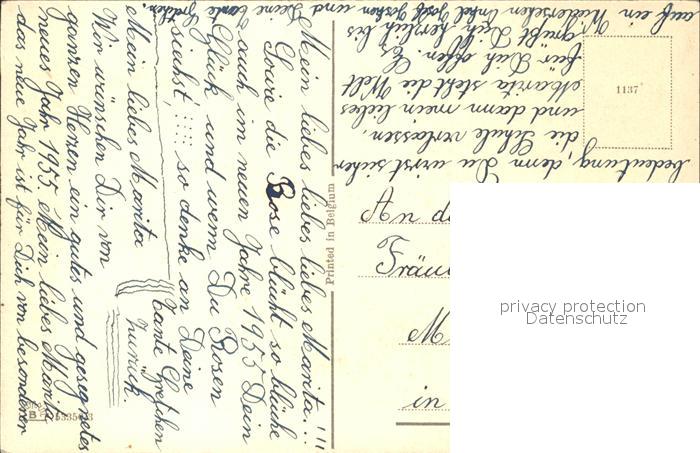 Mein liebes liebes liebes Marita!!!
Sowie die Rose blüht so blühe
auch im neuen Jahre 1955 Dein
Glück und wenn Du Rosen
siehst, so denke an Deine
Tante Gretchen
zurück.
Mein liebes Marita
Wir wünschen Dir von
ganzen Herzen ein gutes und gesegnetes
neues Jahr 1955. Mein liebes Marita
das neue Jahr ist für Dich von besonderer
Bedeutung, denn Du wirst sicher
die Schule verlassen,
und dann mein liebes
Marita steht die Welt
für Dich offen. Es
grüßt Dich herzlich bis
auf ein Wiedersehen Onkel Josef
und Deine Tante Gretchen.
Printed in Belgium
1137
An
in
privacy protection
Datenschutz
B